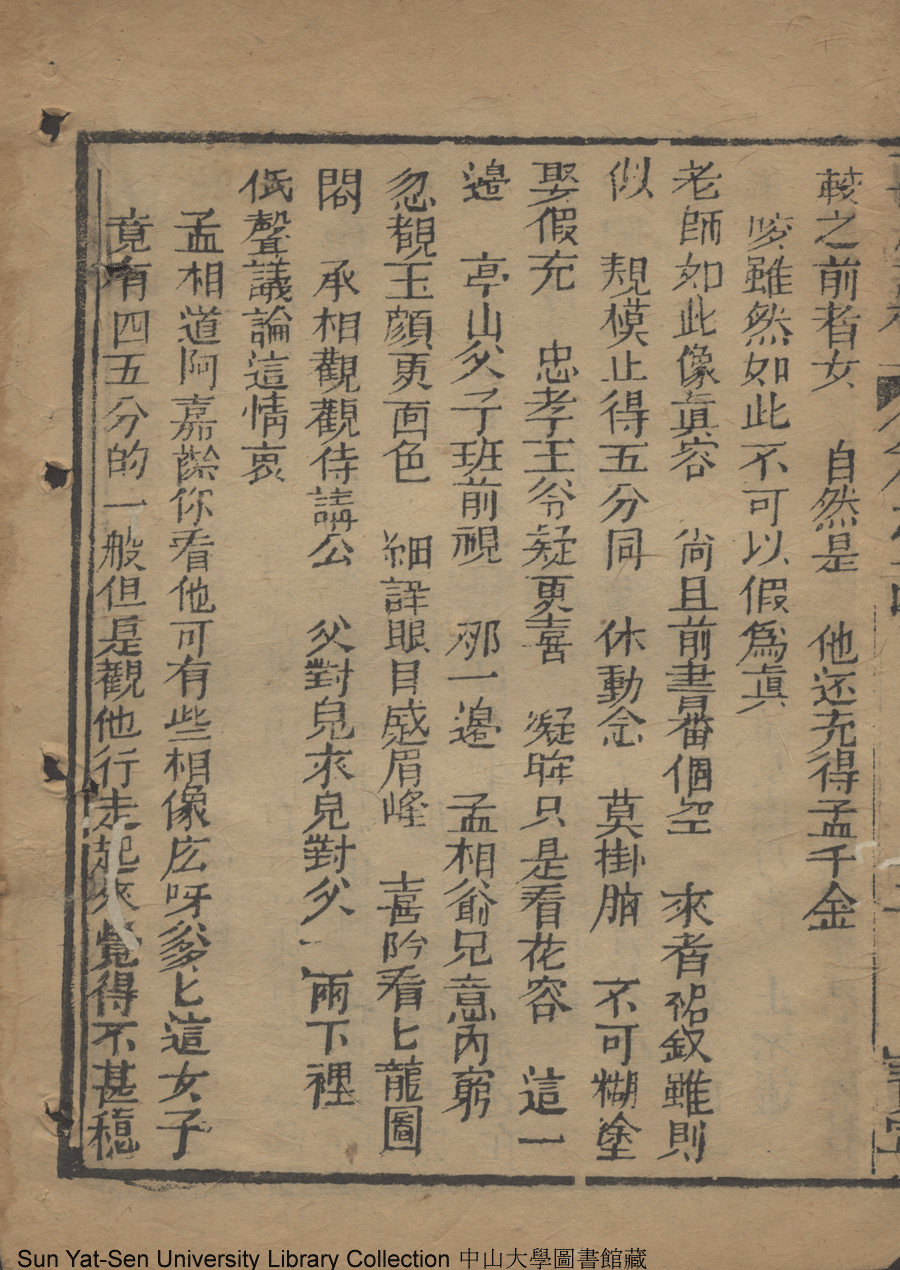 較之前者女　自然是　他还充得孟千金
唉雖然如此不可以假爲眞
老師如此像眞容　尙且前書畨個空　來者裙釵雖則
似　規模止得五分同　休動念　莫掛胸　不可糊塗
娶假充　忠孝王爷疑更喜　凝眸只是看花容　這一
邉　亭山父子班前視　那一邉　孟相爺兒意內窮
忽覩玉顔更面色　細詳眼目感眉峰　喜吟看匕龍圖
閣　承相觀觀侍講公　父對兒來兒對父　兩下裡
低聲議論這情衷
孟相道阿嘉齡你看他可有些相像庅呀爹匕這女子
竟有四五分的一般但是觀他行走起來覺得不甚穏
Sun Yat-Sen University Library Collection 中山大學圖書館藏